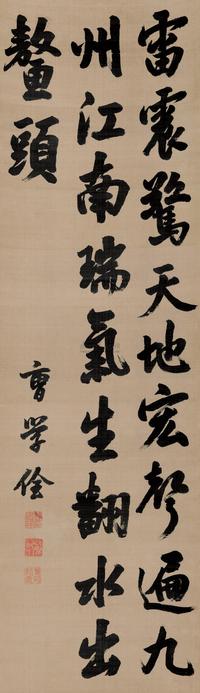 雷震驚天地宏聲遍九
州江南瑞氣生翻水出
鰲頭
曹學佺